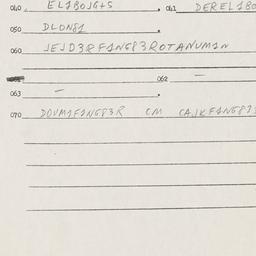 040. EL1BOJG+S . 041 DEREL1BO
050 DLON81 .
060 JEJD3RF1NG83ROTANUM1N
062 —
063 — .
070 DOUM1F1NG83R CM CAJKF1NG83